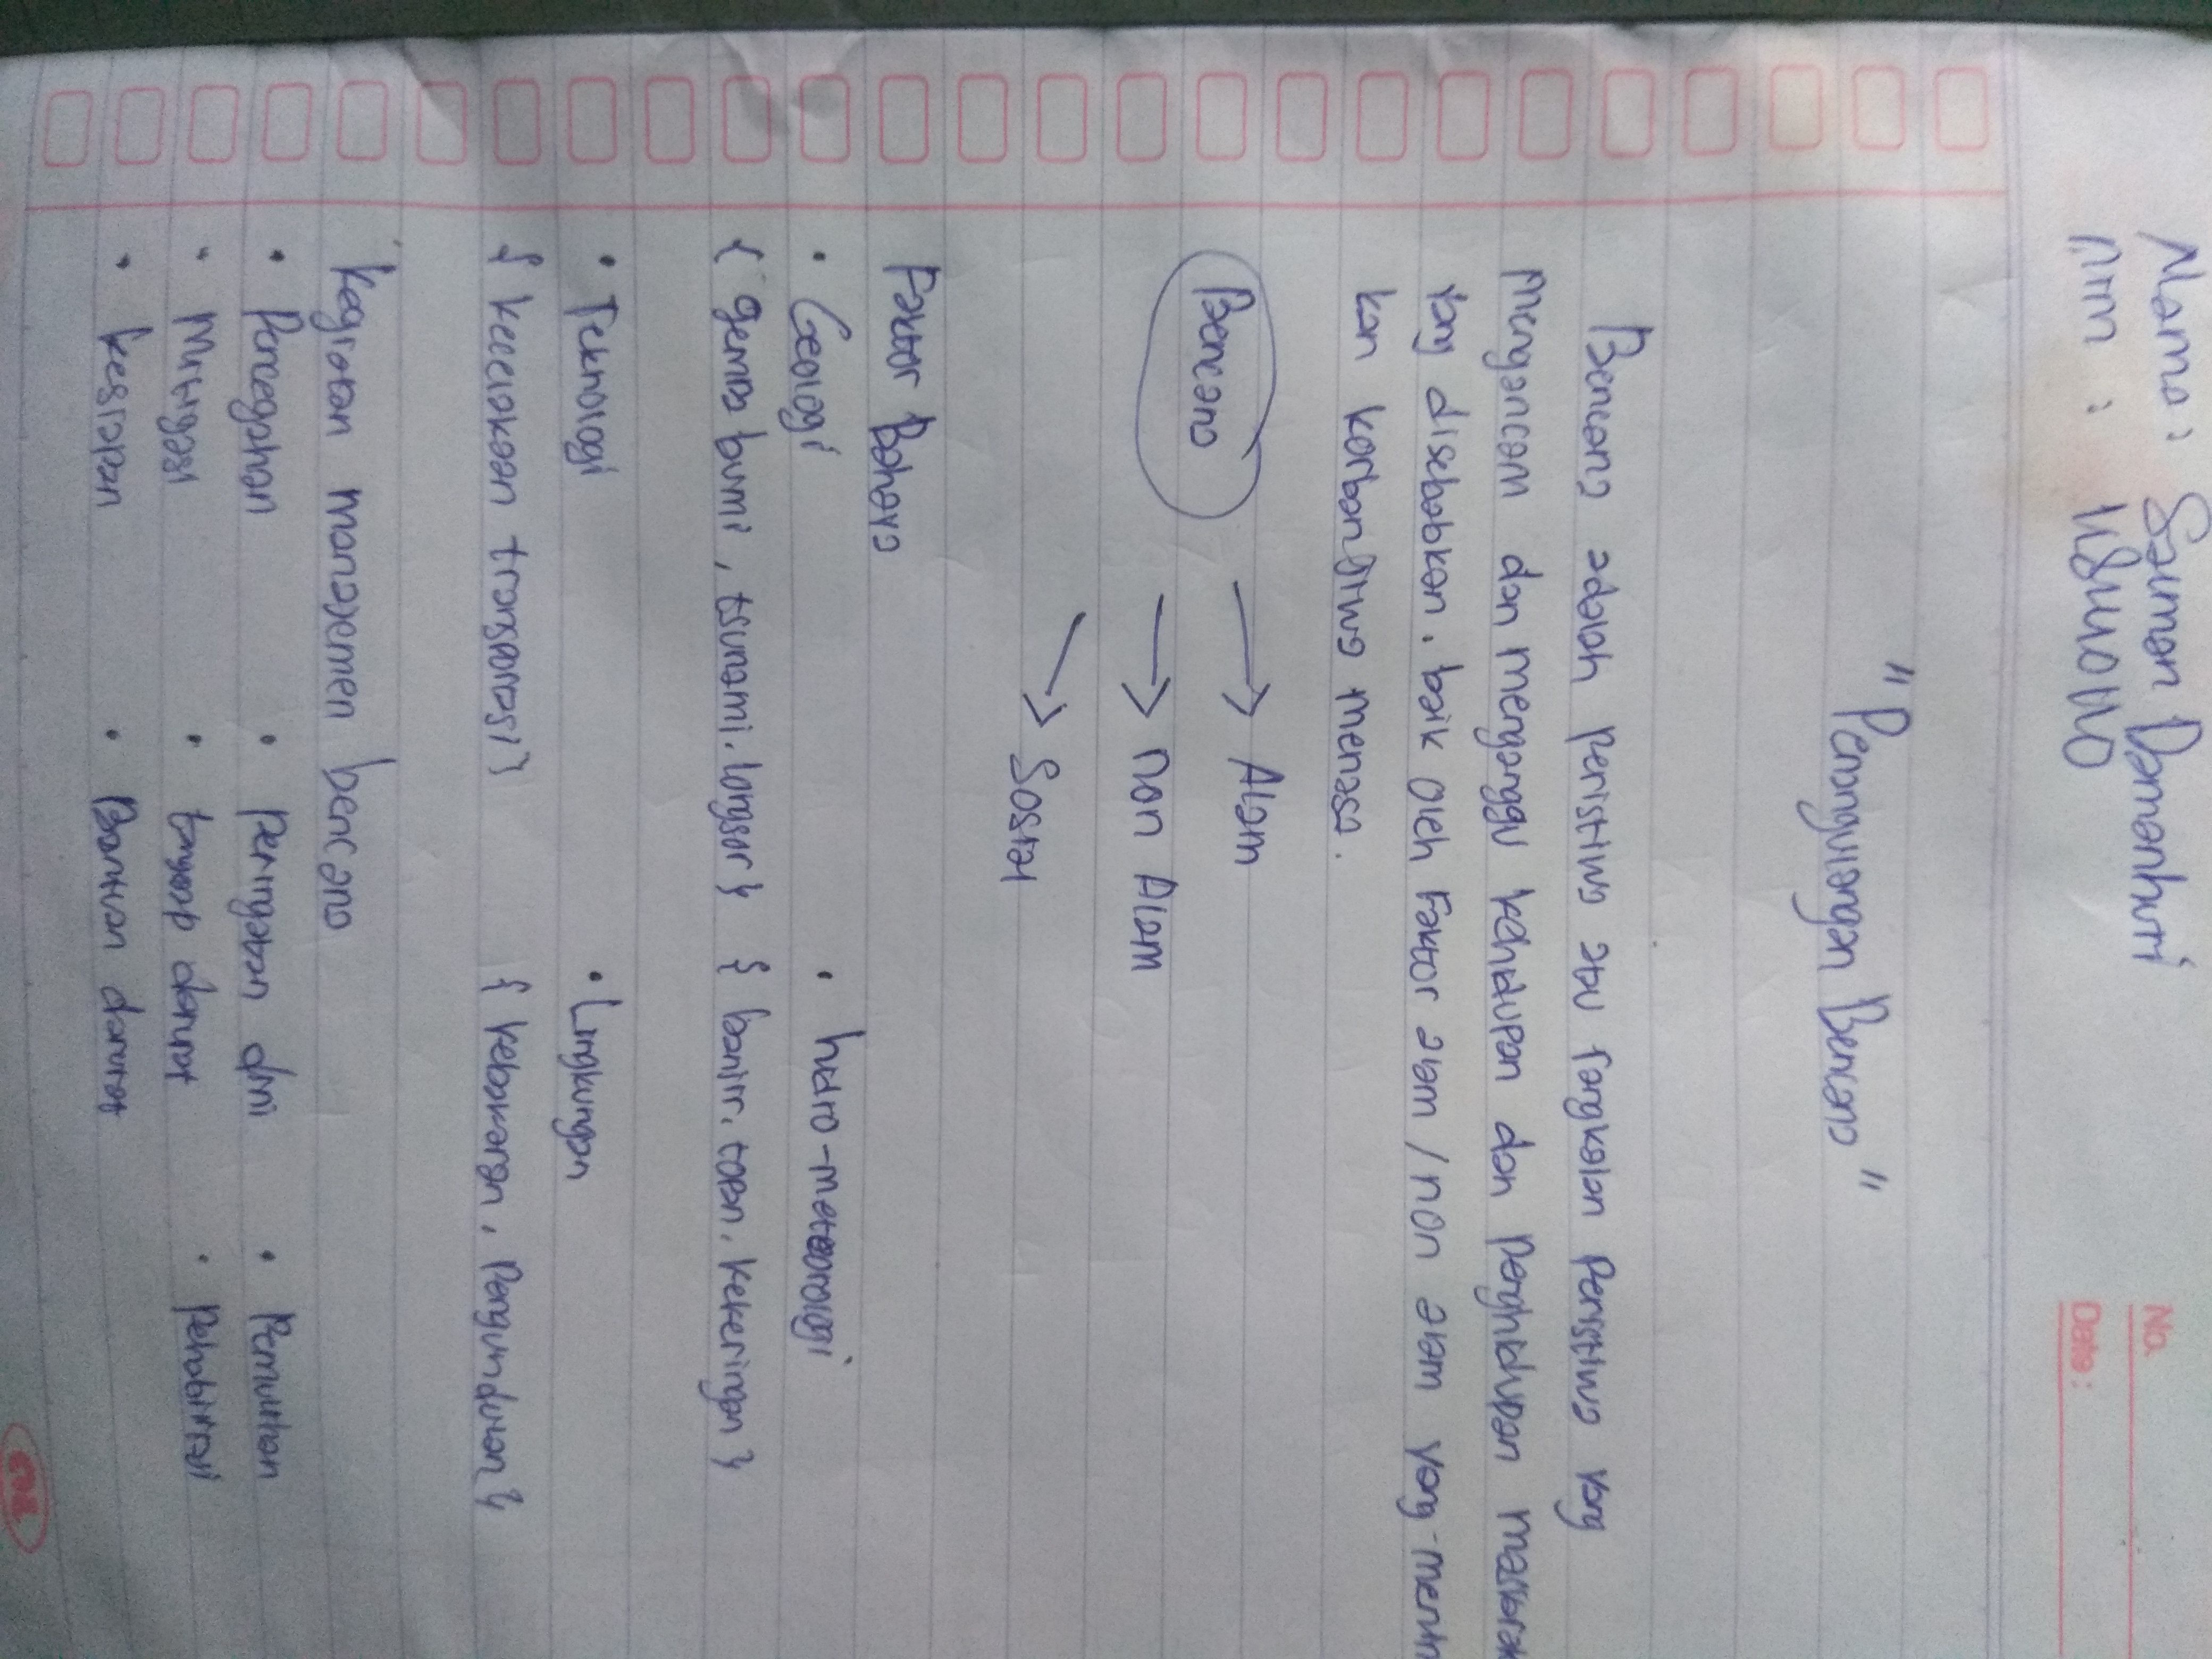 No.
Date:
Nama :
Nim :
"Penanggulangan Bencana"
Bencana adalah peristiwa atau rangkaian peristiwa yang
mengancam dan mengganggu kehidupan dan penghidupan masyarak
yang disebabkan, baik oleh faktor alam / non alam yang menim
kan korban jiwa manusia.
Bencana → Alam
→ Non Alam
→ Sosial
Faktor Bahaya
• Geologi • Hidro-meteorologi
{ gempa bumi, tsunami, longsor } { banjir, topan, kekeringan }
• Teknologi • Lingkungan
{ kecelakaan transportasi } { kebakaran, }
Kegiatan manajemen bencana
• Pencegahan • peringatan dini • Pemulihan
• Mitigasi • tanggap darurat • rehabilitasi
• kesiapan • Bantuan darurat